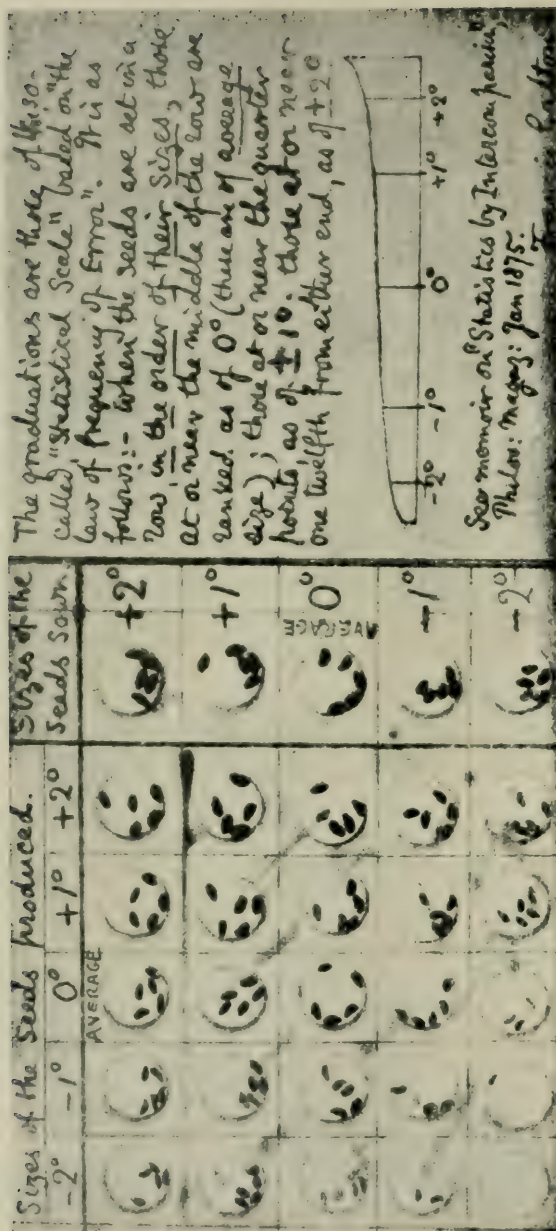 Sizes of the Seeds produced.
-2° -1° 0° +1° +2°
AVERAGE
Sizes of the
Seeds Sown.
+2°
+1°
0°
AVERAGE
-1°
-2°
The graduations are those of the so-
called "Statistical Scale" based on "the
law of frequency of Error". It is as
follows:- when the seeds are set in a
row in the order of their Sizes, those
at or near the middle of the row are
ranked as of 0° (these are of average
size); those at or near the quarter
points as of ±1°. those at or near
one twelfth from either end, as of ±2°
-2° -1° 0° +1° +2°
See memoir on "Statistics by Intercomparison"
Philos: Magaz: Jan 1875.
Francis Galton